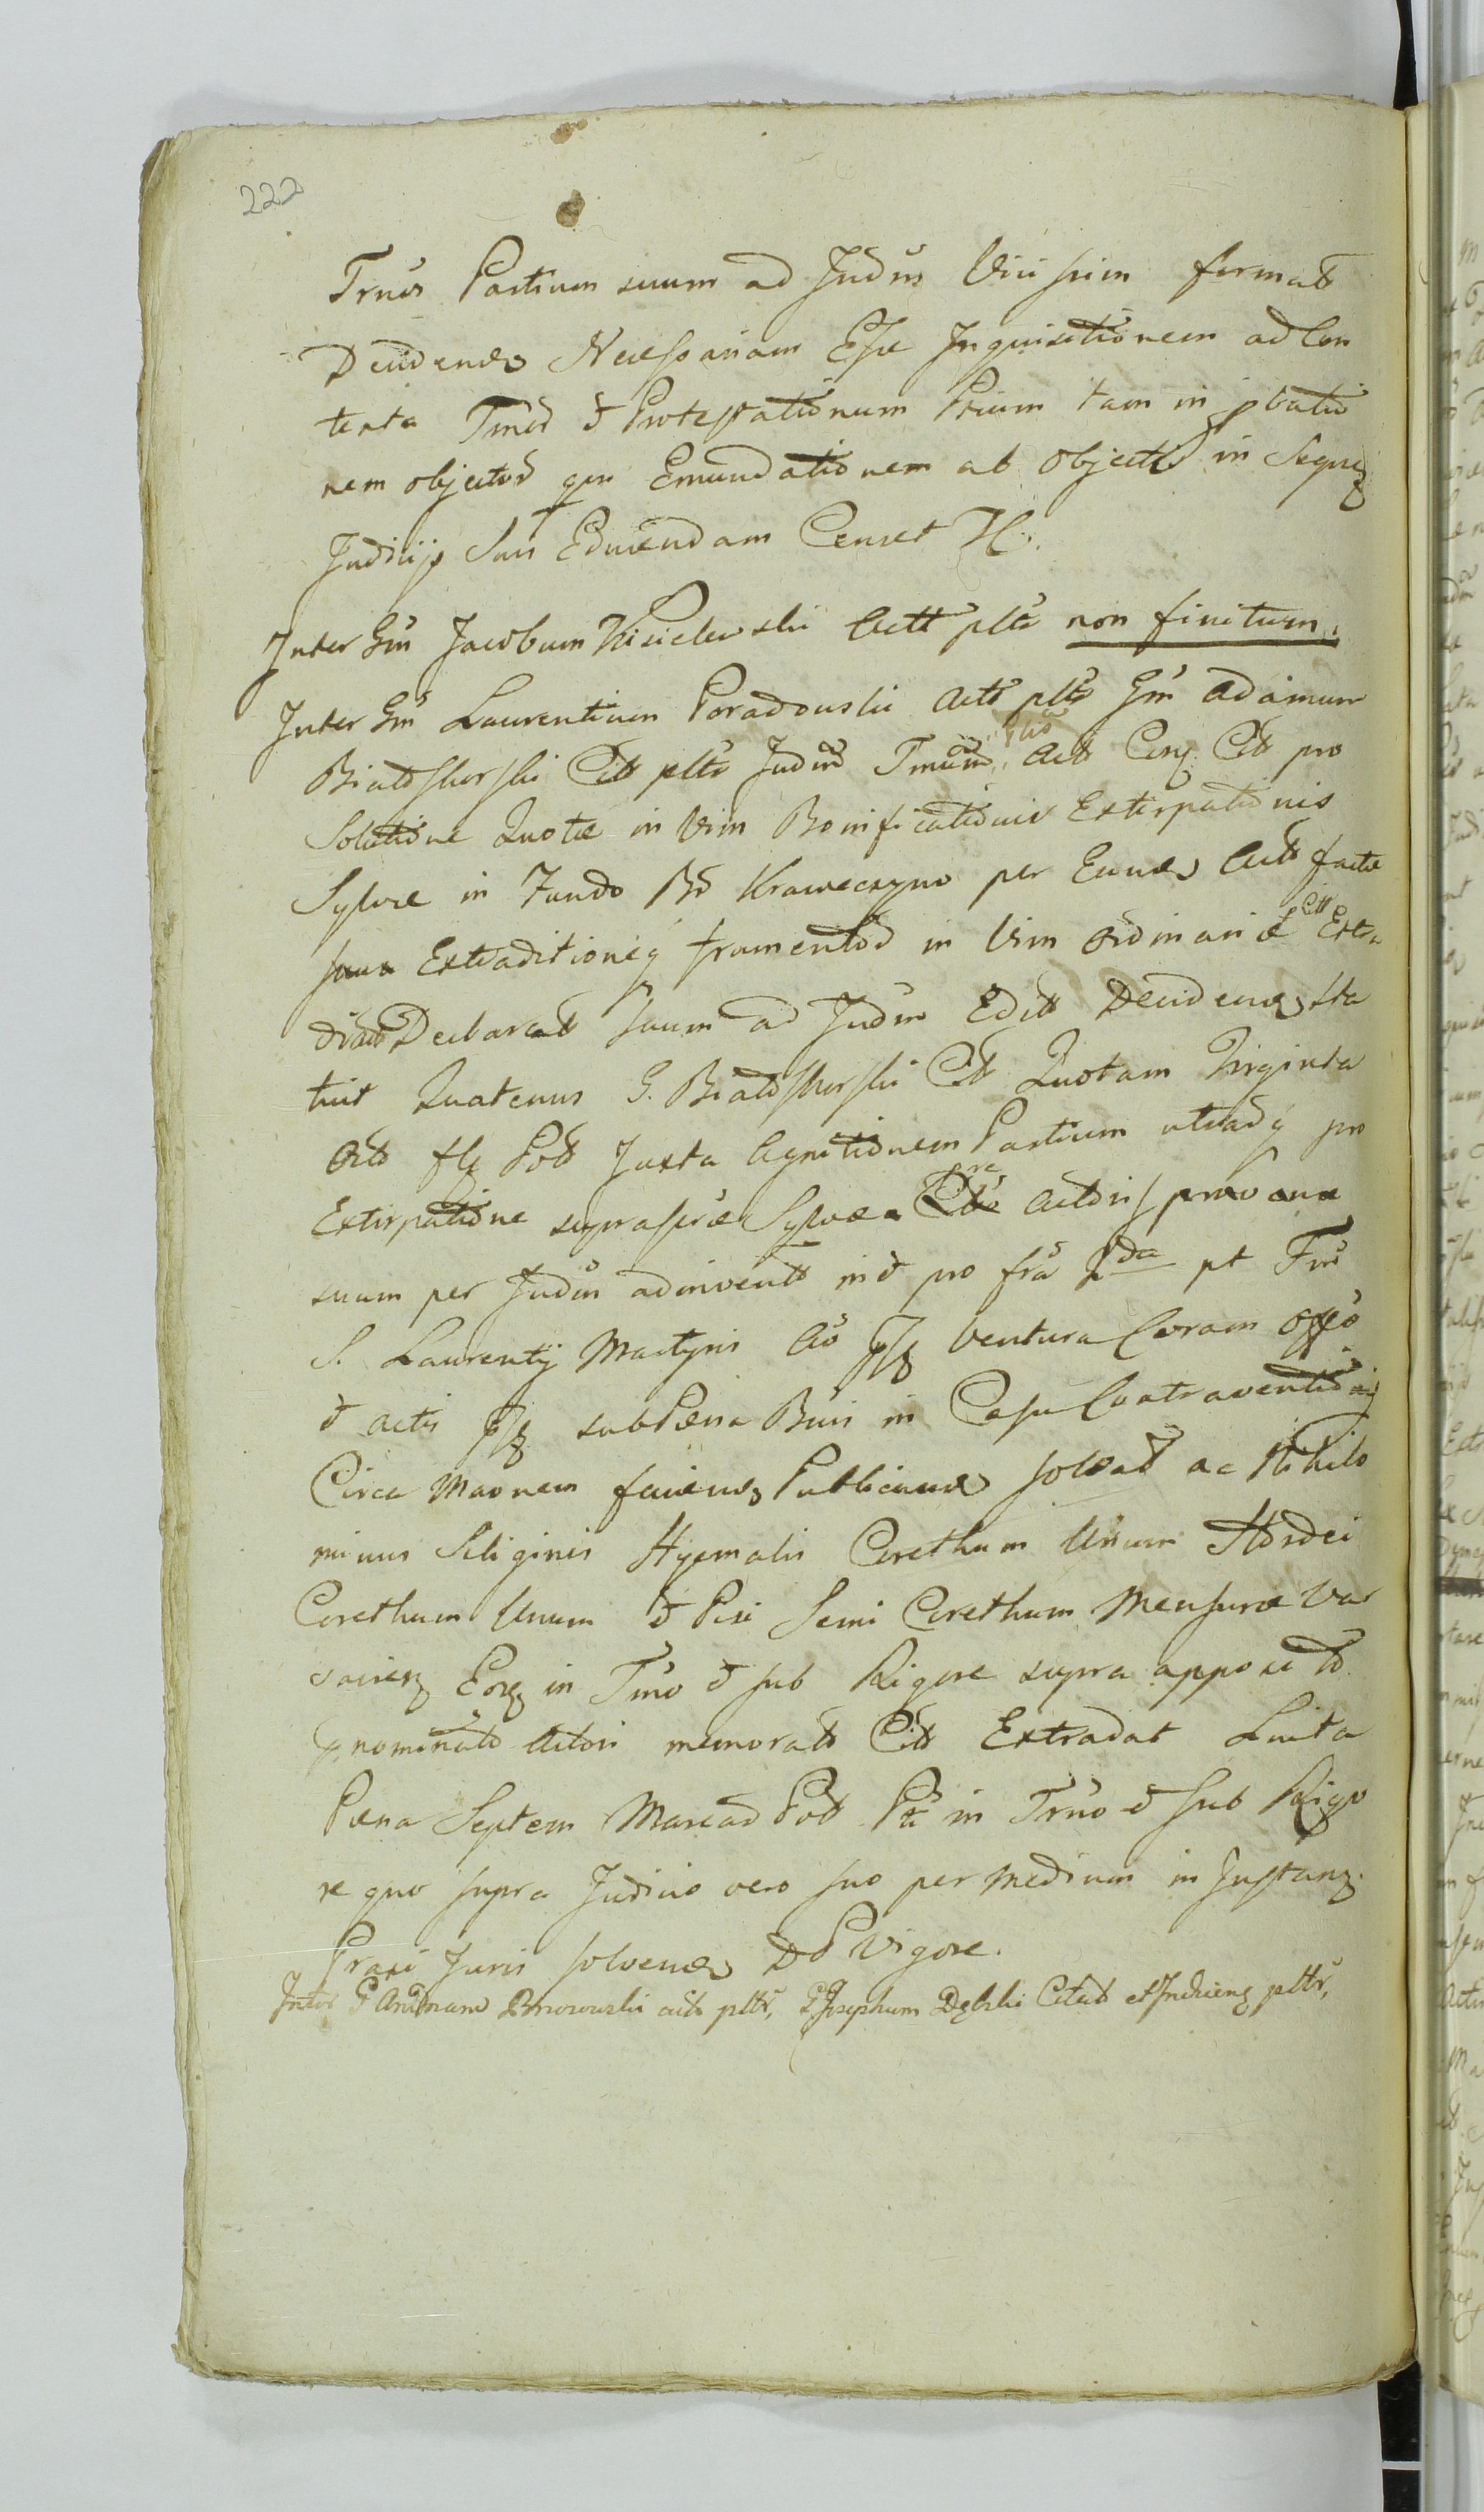 222
Trnos Partium suum ad Judm Vicissim format
Decidendo Necessariam Esse Inquisitionem ad Con
tenta Tmor et Protestationum Ptium tam in pbatio
nem objector qm Emundationem ab objectis in Sequen
Judicijs Suis Educendam Censet H.
Inter Gm Jacobum Kisielewski Actt pltr non finitum.
Inter Gm Laurentium Poradowski Actt pltr Gm Adamum
Białoskorski Citt pltr Judm Tmum Act Cong Citt pro
Solutione Quotæ in Vim Bonificationis Extirpationis
Sylvæ in Fundo Br Kraweczyno per Eund Actt factæ
Extraditionisq frumentor in Vim Ordinariæ Citt Extra
diat Declarat suum ad Judm Editt Decidendo Sta
tuit Quatenus G. Białoskorski Citt Quotam Triginta
Octo flz Pol Juxta Agnitionem Partium utradq pro
Extirpatione suprascræ Sylvæ Actoris
suum per Judm adinvent pro frâ 2da pt Fm
S. Laurentij Martyris Ao Ventura Coram Offo
et actis sub Pæna Bni in Casu Contraventionis
Circa Maonem faciend Publicand solvat ac Nihilo
minus Siliginis Hyemalis Corethum Unum Hordei
Corethum Unum et Pisi Semi Corethum Mensuræ Var
savien Eog in Tmo et sub Rigore supra apposito
pnominato Actori memorat Citt Extradat Luita
Pæna Septem Marcar Pol Pti in Trno et sub Rigo
re quo supra Judicio vero suo per Medium in Instanz
Praxi Juris solvend DP Vigore.
Inter G Andream Brzozowski actt pltr, GJosephum Dębski Citat et Inducen pltr,